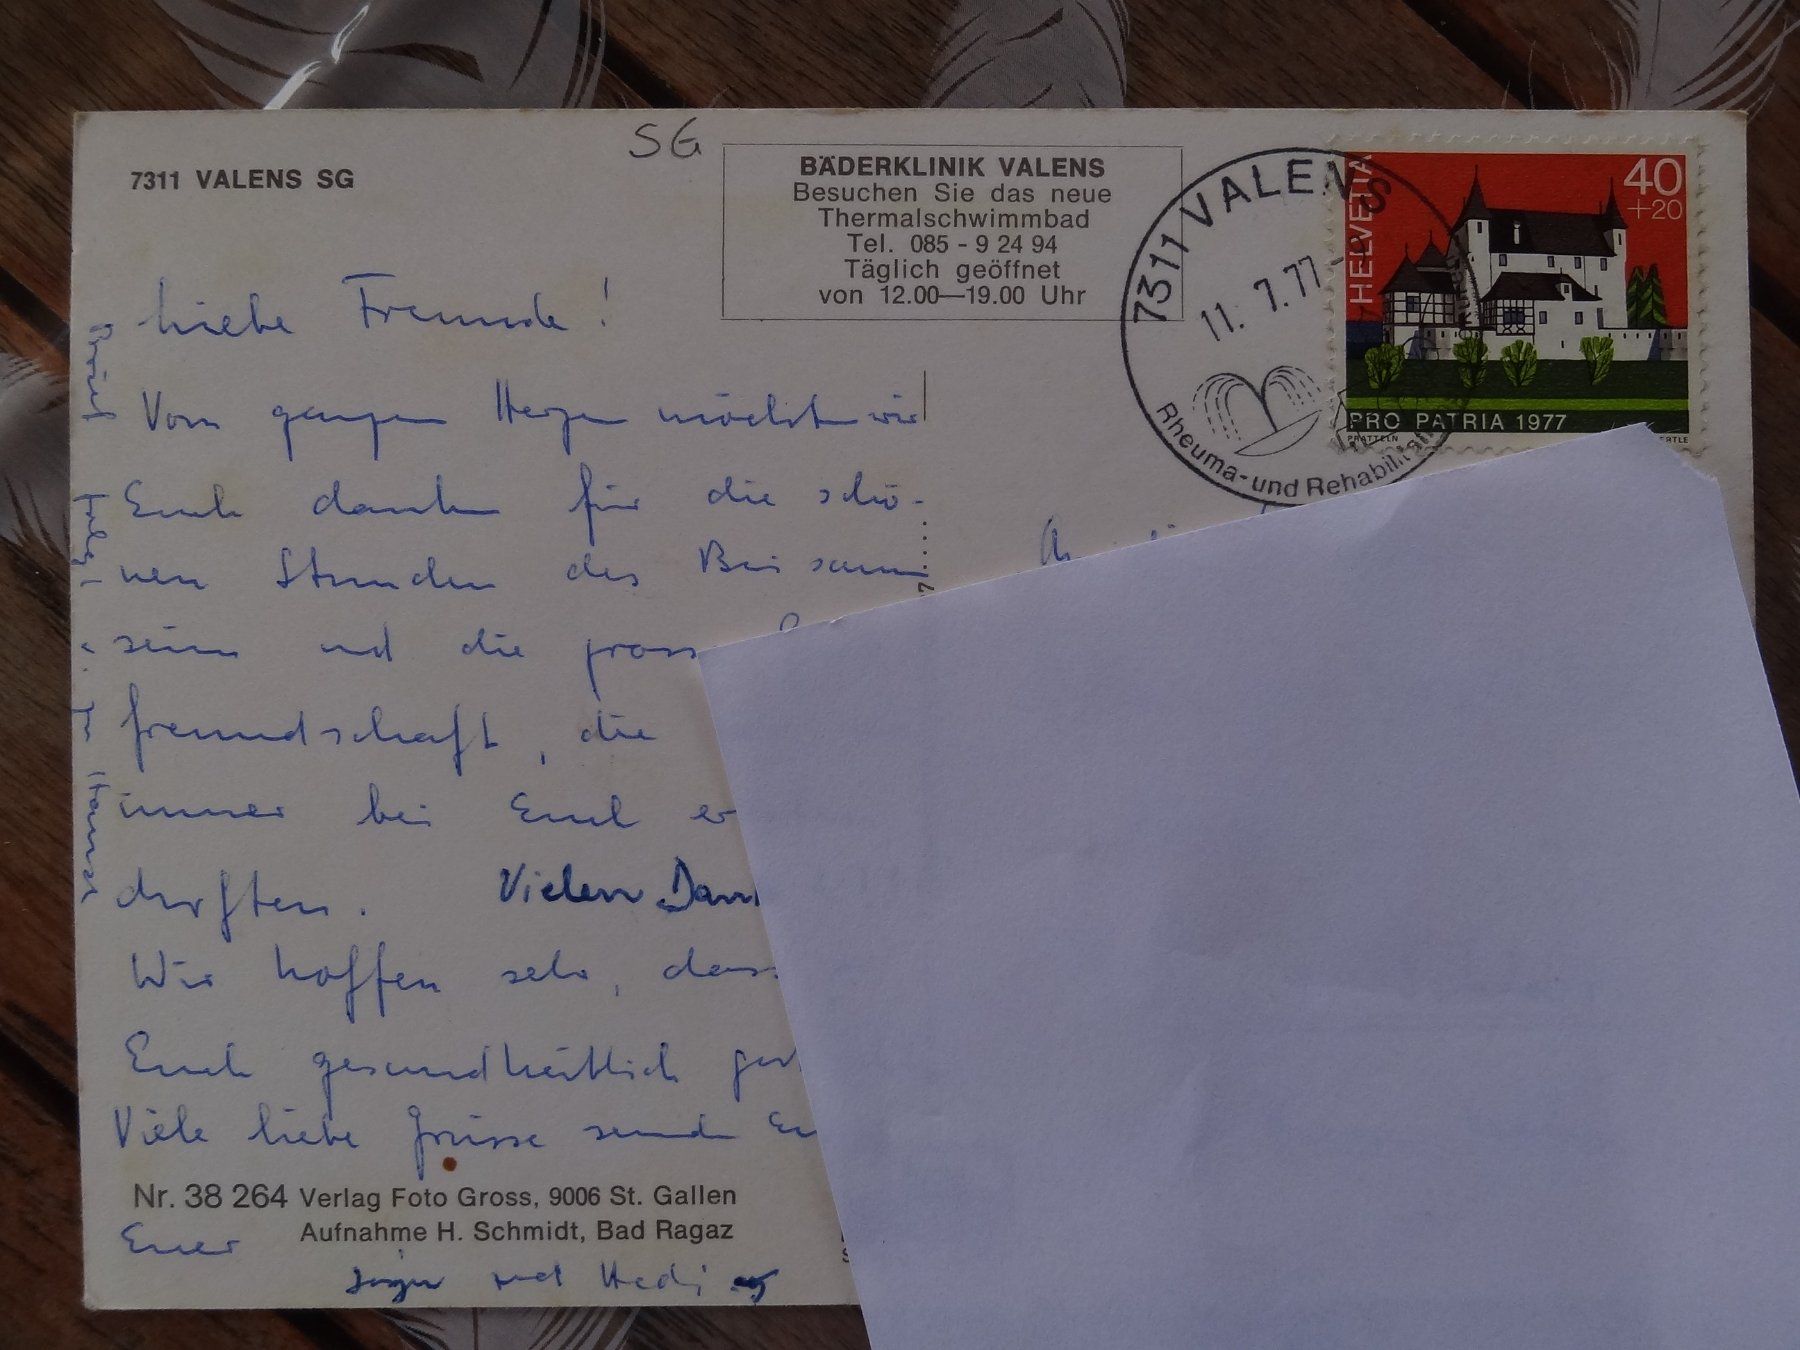 SG
7311 VALENS SG
BÄDERKLINIK VALENS
Besuchen Sie das neue
Thermalschwimmbad
Tel. 085 - 9 24 94
Täglich geöffnet
von 12.00—19.00 Uhr
7311 VALENS
11. 7.77
Rheuma- und Rehabilit
HELVETIA
40
+20
PRO PATRIA 1977
PRATTELN
Liebe Freunde!
Von ganzen Herzen möchten wir
Euch danken für die schö-
nen Stunden des Beisamm
seins und die gross
freundschaft, die
immer bei Euch er
durften. Vielen Dank
Wir hoffen sehr, dass
Euch gesundheitlich gut
Viele liebe Grüsse senden Eu
Nr. 38 264 Verlag Foto Gross, 9006 St. Gallen
Aufnahme H. Schmidt, Bad Ragaz
Euer
und Hedi